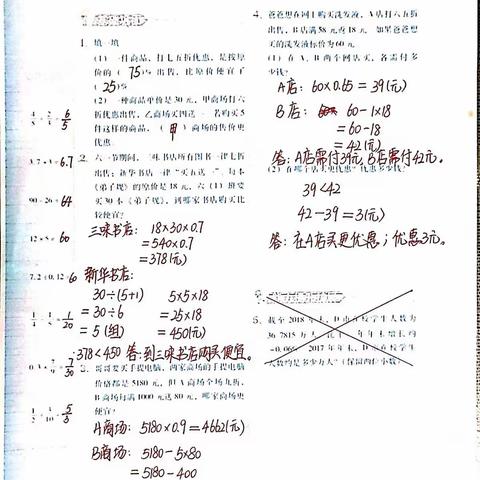 1. 填一填
(1) 一件商品，打七五折优惠，是按原
价的（75）%出售，比原价便宜了
（25）%
(2) 一种商品单价是30元，甲商场打六
折优惠出售，乙商场买四送一，若购买5
件这样的商品，（甲）商场的售价更
优惠。
2. 六一节期间，三味书店所有图书一律七折
出售；新华书店"买五送一"，每本
《弟子规》的原价是18元，六（1）班要
买30本《弟子规》，到哪家书店购买比
较便宜？
三味书店：18×30×0.7
=540×0.7
=378(元)
新华书店：
30÷(5+1)  5×5×18
=30÷6  =25×18
=5(组)  =450(元)
378<450 答：到三味书店购买便宜。
3. 哥哥要买手提电脑，两家商场的手提电脑
价格都是5180元，但A商场全场九折，
B商场每满1000元送80元，哪家商场更
便宜？
A商场：5180×0.9=4662(元)
B商场：5180-5×80
=5180-400
6/5
=6.7
90-26=64
12×5=60
7.2÷0.12=60
1/20
4. 爸爸想在网上购买洗发液，A店打六五折
出售，B店满58元返18元，如果爸爸想
买的洗发液标价为60元。
(1) 在A、B两个网店买，各需付多
少钱？
A店：60×0.65=39(元)
B店：60-1×18
=60-18
=42(元)
答：A店需付39元，B店需付42元。
(2) 在哪个店买更优惠？优惠多少钱？
39<42
42-39=3(元)
答：在A店买更优惠；优惠3元。
5. 截至2018年末，D市在校学生人数为
36.7815万人，比上一年年末增长约
-0.06%，2017年年末，D市在校学生
人数约是多少万人？（保留两位小数）